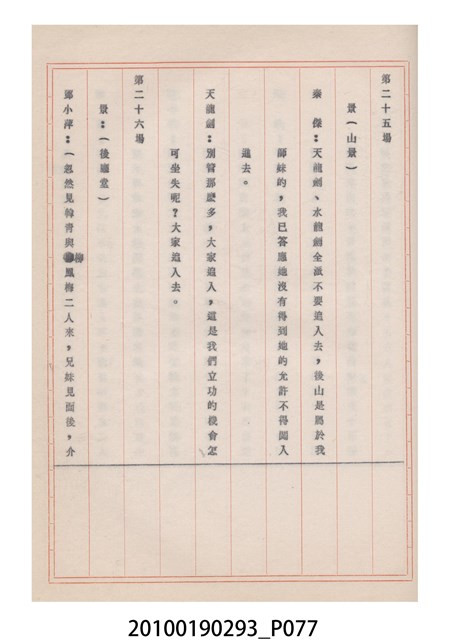 第二十五場
景(山景)
秦　傑：天龍劍、水龍劍全派不要追入去，後山是屬於我
師妹的，我已答應她沒有得到她的允許不得闖入
進去。
天龍劍：別管那麽多，大家追入，這是我們立功的機會怎
可坐失呢？大家追入去。
第二十六場
景：(後廳堂)
鄧小萍：(忽然見韓青與柳鳳梅二人來，兄妹見面後，介
20100190293_P077